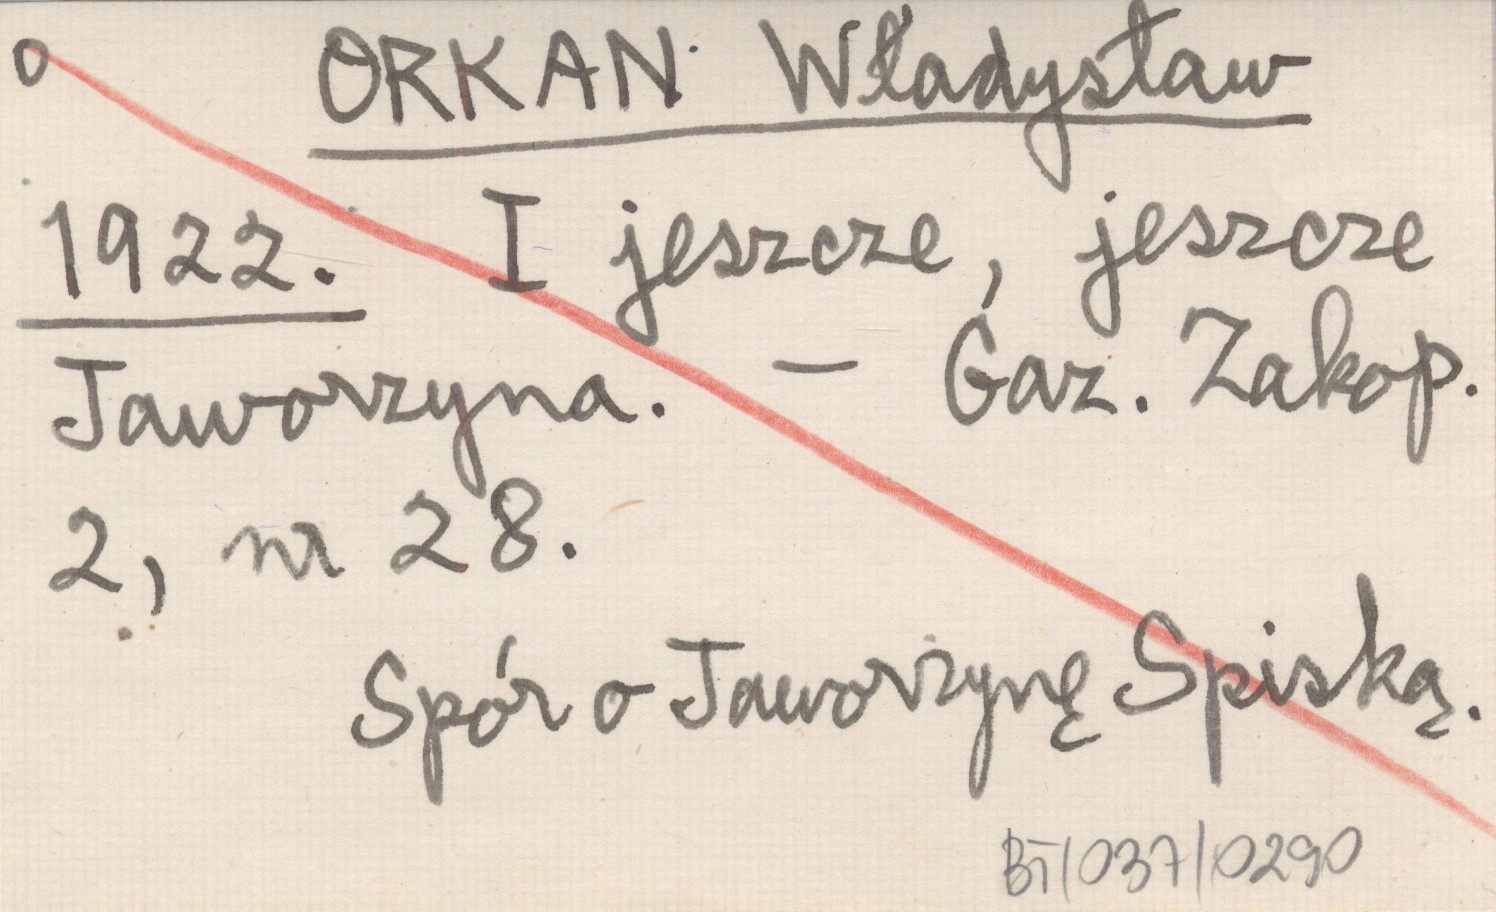 o ORKAN Władysław
1922. I jeszcze, jeszcze
Jaworzyna. – Gaz. Zakop.
2, nr 28.
Spór o Jaworzynę Spiską.
BT/037/0290